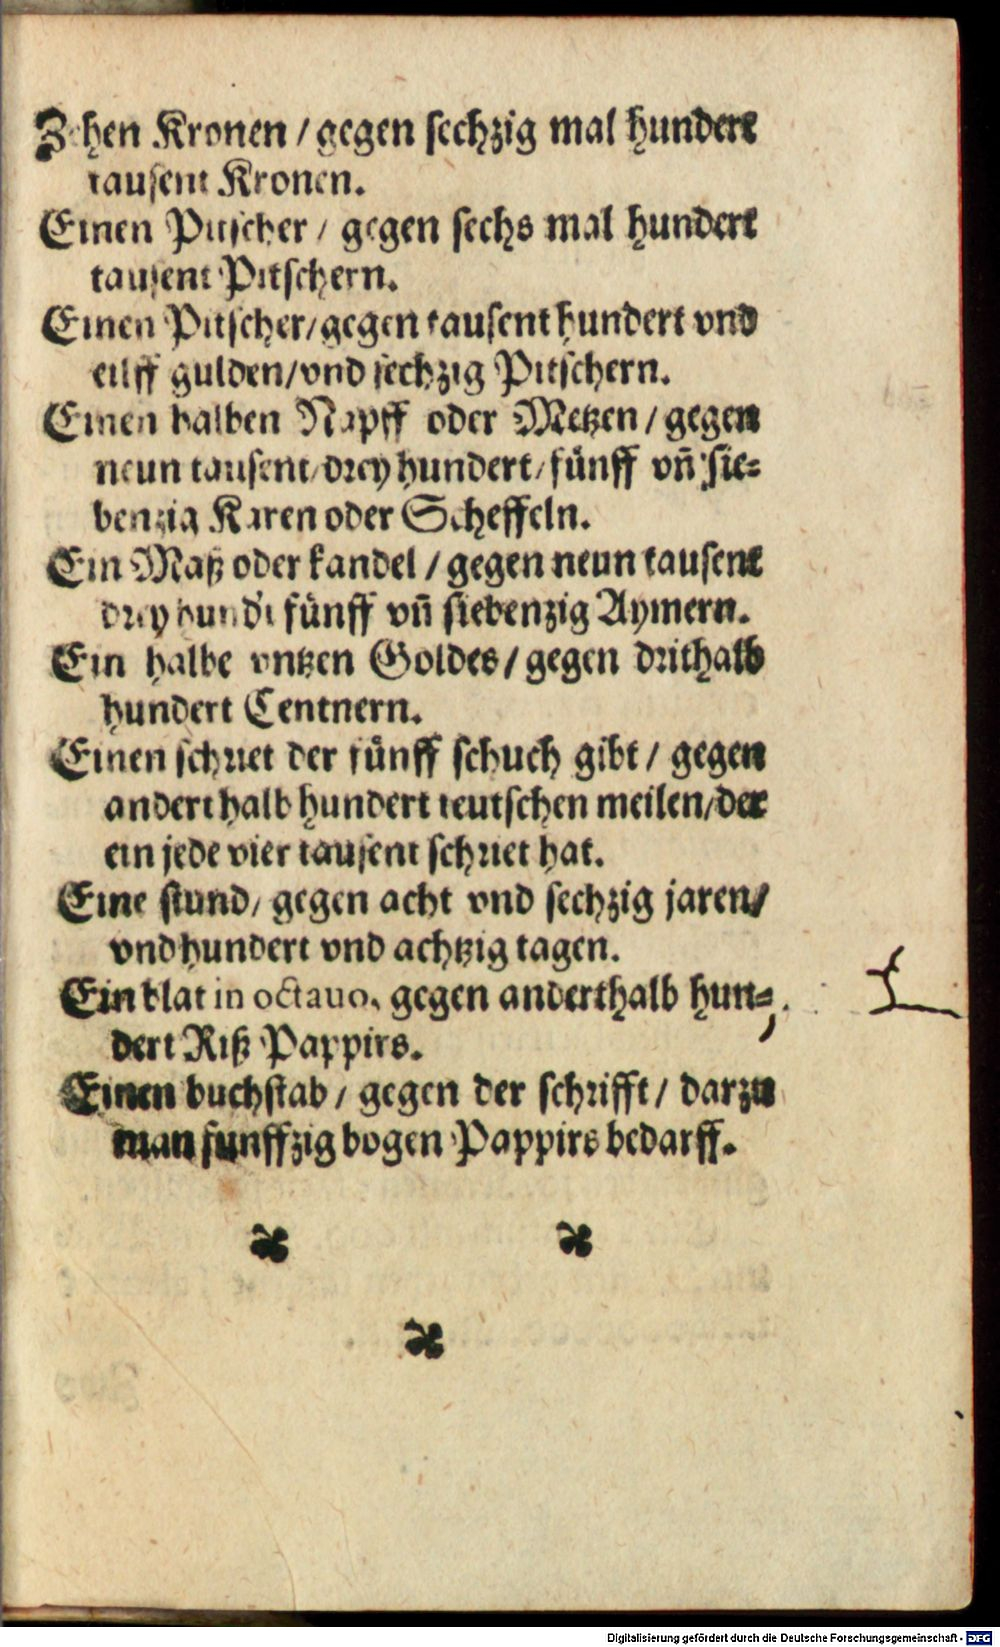 Zehen Kronen / gegen sechzig mal hundert
tausent Kronen.
Einen Pitscher / gegen sechs mal hundert
tausent Pitschern.
Einen Pitscher / gegen tausent hundert vnd
eilff gulden / vnd sechzig Pitschern.
Einen halben Napff oder Metzen / gegen
neun tausent / drey hundert / fünff vn̄ sie⸗
benzig Karen oder Scheffeln.
Ein Maß oder kandel / gegen neun tausent
drey hundt fünff vn̄ siebenzig Aymern.
Ein halbe vntzen Goldes / gegen drithalb
hundert Centnern.
Einen schriet der fünff schuch gibt / gegen
anderthalb hundert teutschen meilen / der
ein jede vier tausent schriet hat.
Eine stund / gegen acht vnd sechzig jaren /
vnd hundert vnd achtzig tagen.
Ein blat in octauo, gegen anderthalb hun⸗
dert Riß Pappirs.
Einen buchstab / gegen der schrifft / darzu
man funffzig bogen Pappirs bedarff.
Digitalisierung gefördert durch die Deutsche Forschungsgemeinschaft - DFG